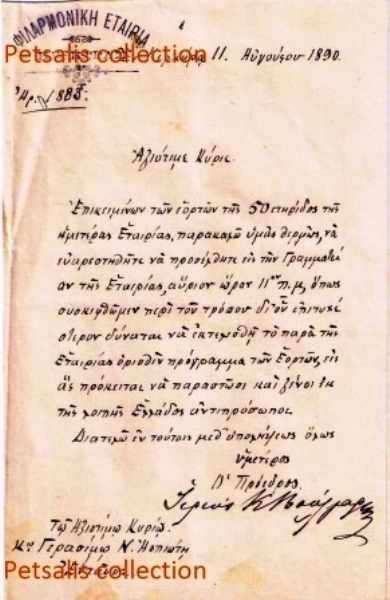 ΦΙΛΑΡΜΟΝΙΚΗ ΕΤΑΙΡΙΑ
Petsalis collection
11. Αὐγούστου 1890.
Ἀρ. 888.
Ἀξιότιμε Κύριε
Ἐπικειμένων τῶν ἑορτῶν τῆς 50ετηρίδος τῆς
ἡμετέρας Ἑταιρίας, παρακαλῶ ὑμᾶς θερμῶς, νὰ
εὐαρεστηθῆτε νὰ προσέλθητε εἰς τὴν Γραμματεί
αν τῆς Ἑταιρίας, αὔριον ὥραν 11ην π.μ, ὅπως
συσκεφθῶμεν περὶ τοῦ τρόπου δι' οὗ ἐπιτυχέ
στερον δύναται νὰ ἐκτελεσθῇ τὸ παρὰ τῆς
Ἑταιρίας ὁρισθὲν πρόγραμμα τῶν Ἑορτῶν, εἰς
ἃς πρόκειται νὰ παραστῶσι καὶ ξένοι ἐκ
τῆς λοιπῆς Ἑλλάδος ἀντιπρόσωποι.
Διατελῶ ἐν τούτοις μεθ' ὑπολήψεως ὅλως
ὑμέτερος
Ὁ Πρόεδρος
Τῷ Ἀξιοτίμῳ Κυρίῳ
Κῳ Γερασίμῳ Ν. Ἀσπιώτῃ
Petsalis collection